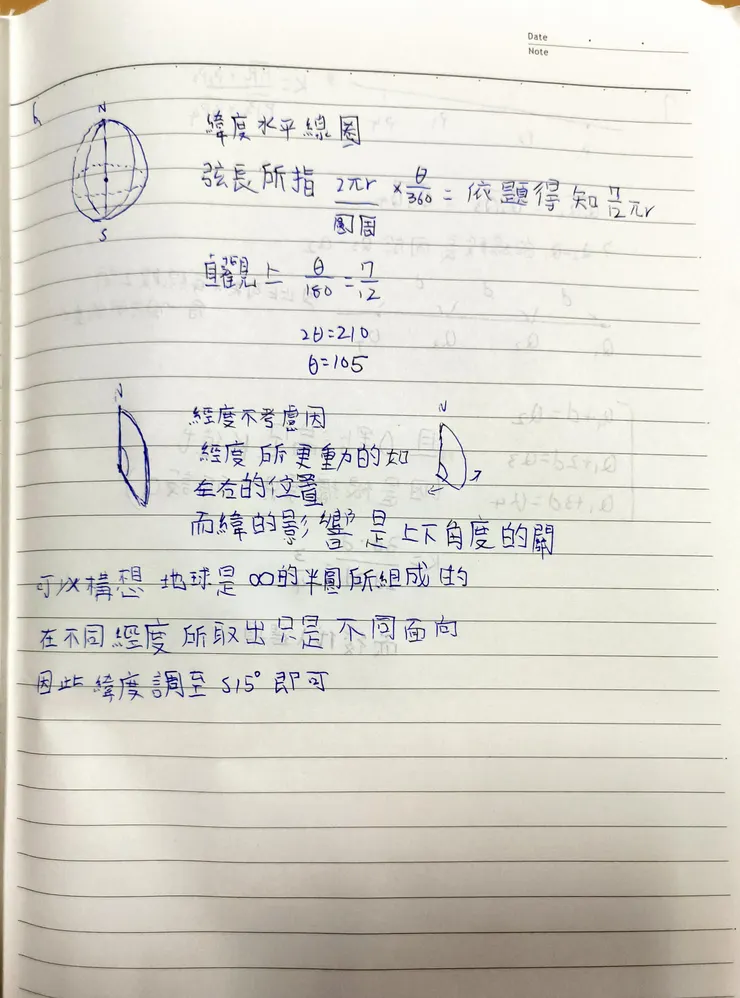 Date
Note
6
N
S
緯度水平線圈
弦長所指 2πr × θ/360 = 依題得知 7/12 πr
圓周
直觀上 θ/180 = 7/12
2θ=210
θ=105
N
N
經度不考慮因
經度所更動的如
左右的位置
而緯的影響是上下角度的關
可以構想 地球是∞的半圓所組成的
在不同經度所取出只是不同面向
因此緯度調至S15°即可